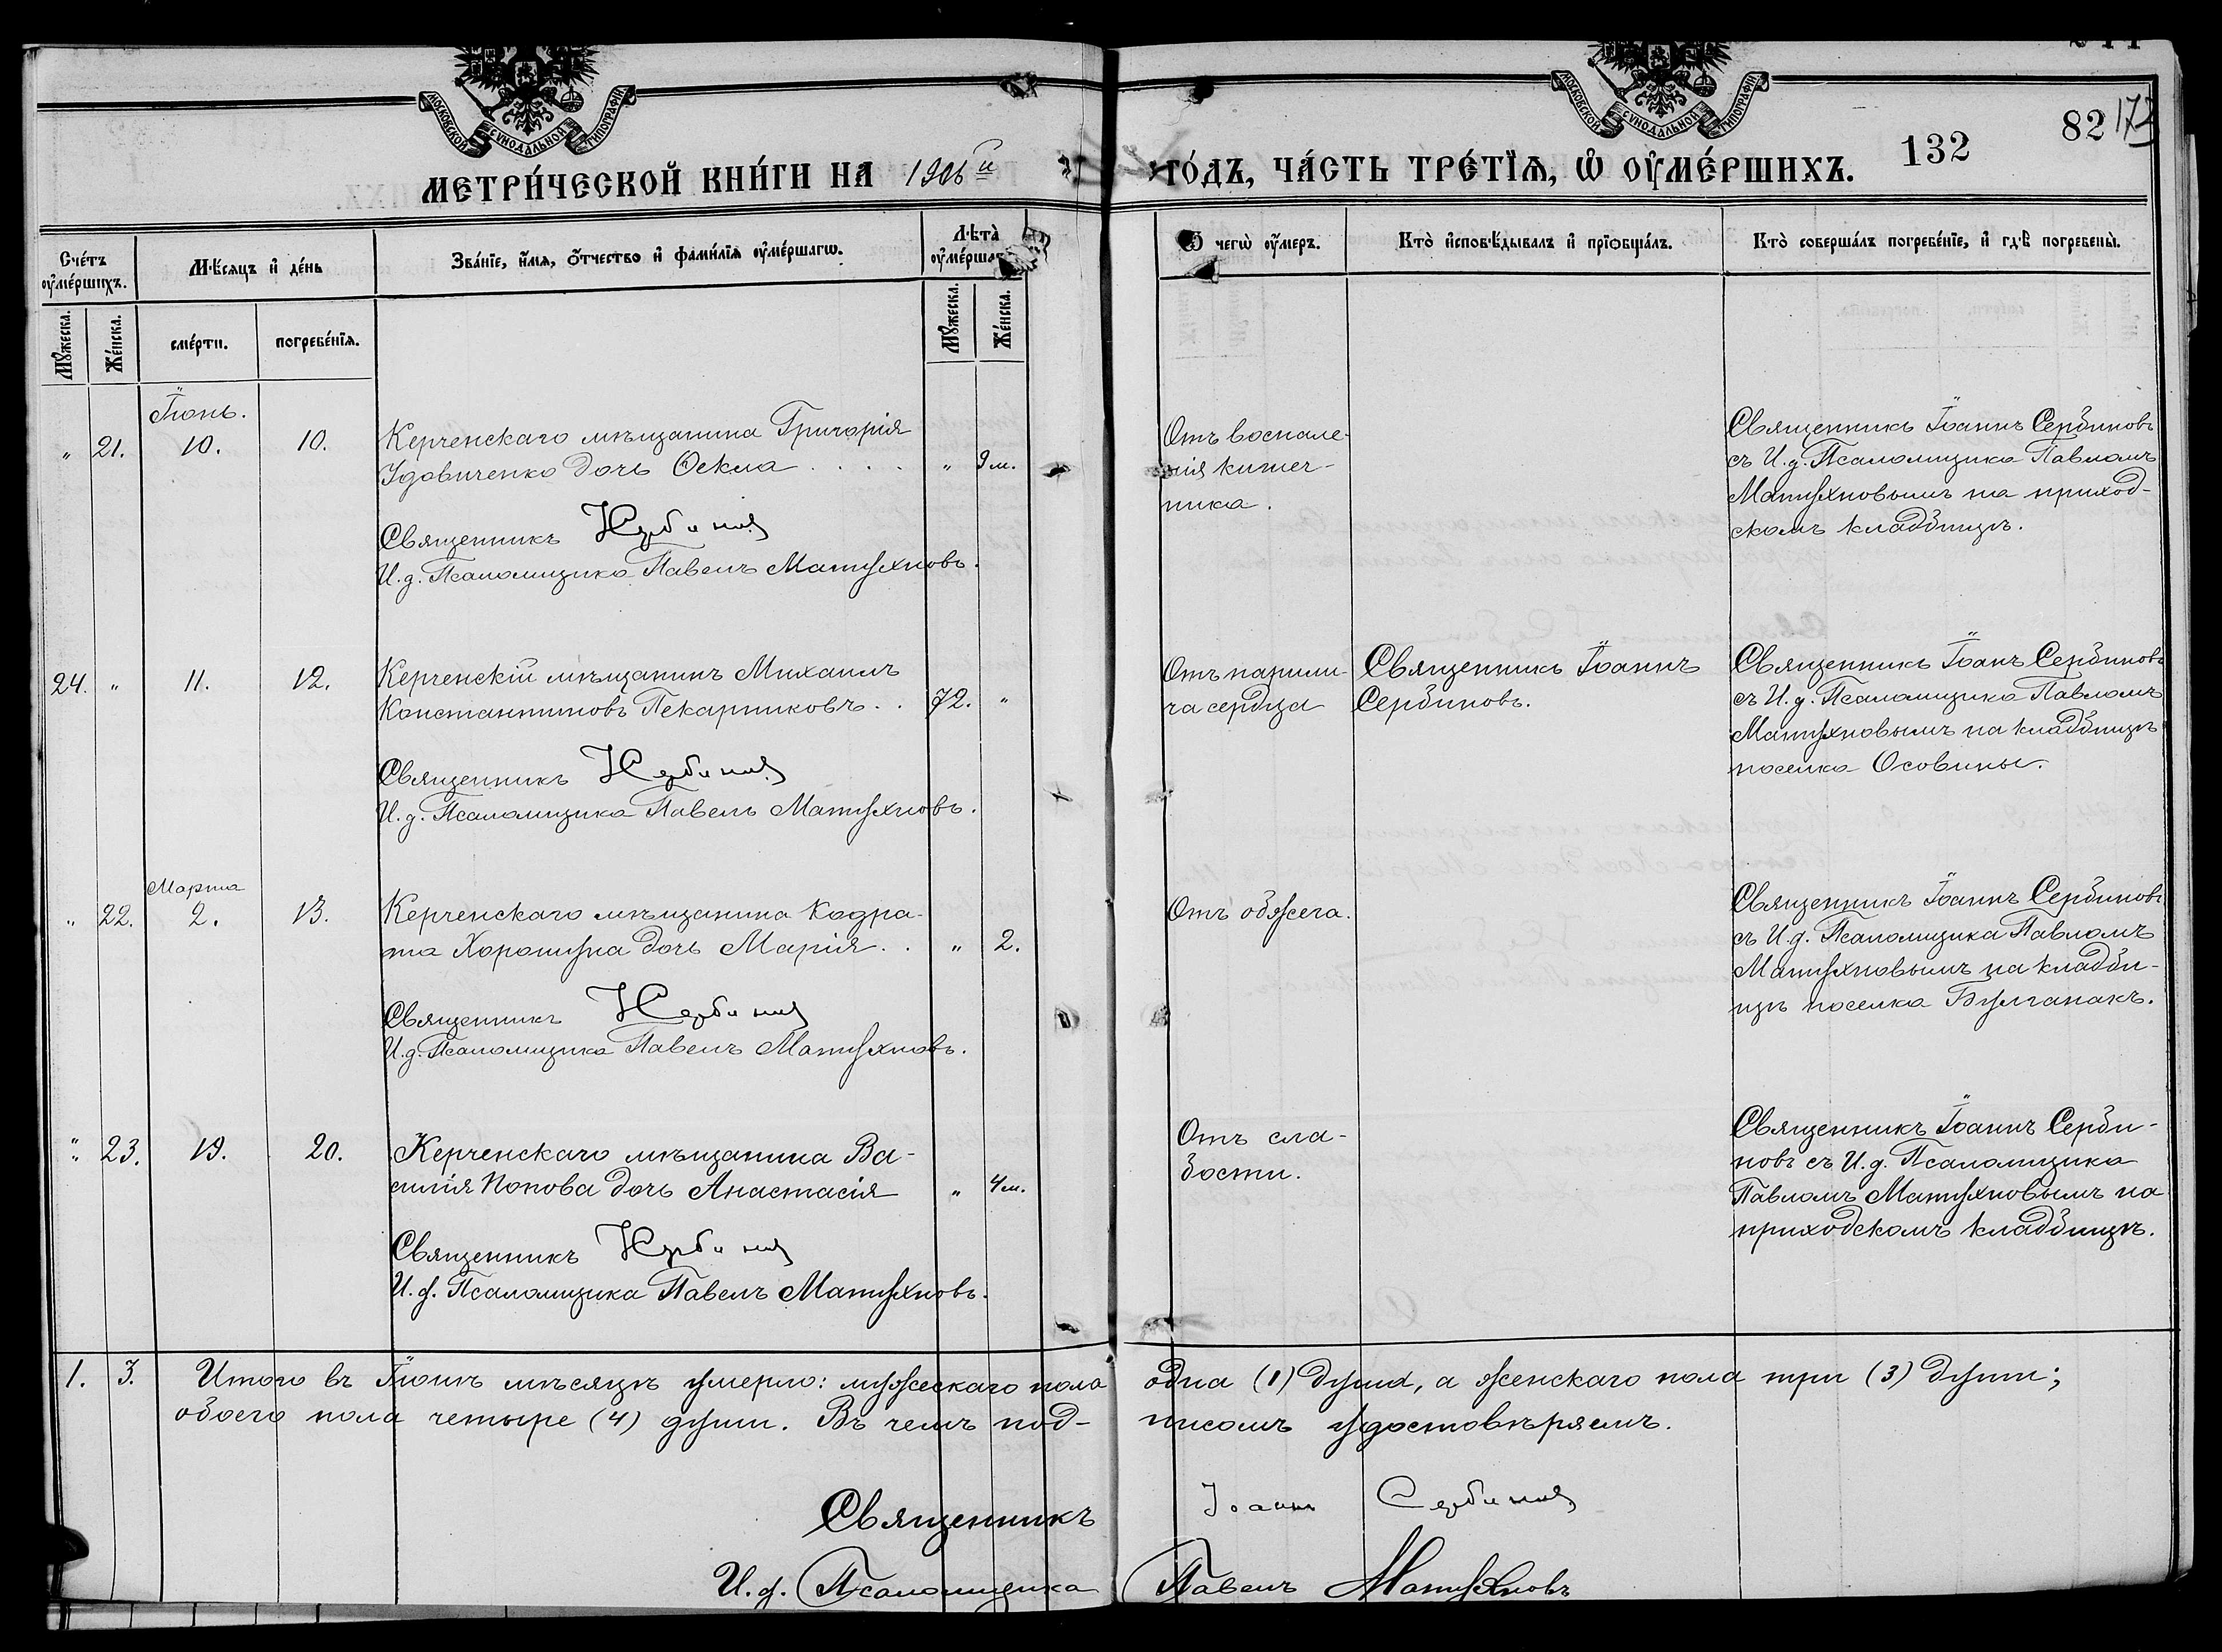 МОСКОВСКОЙ СѴНОДАЛЬНОЙ ТИПОГРАФІИ
МОСКОВСКОЙ СѴНОДАЛЬНОЙ ТИПОГРАФІИ
МЕТРИ́ЧЕСКОЙ КНИ́ГИ НА 1906й
ГО́ДЪ, ЧА́СТЬ ТРЕ́ТЇѦ, Ѡ ОУ҆МЕ́РШИХЪ.
132
82
173
Сче́тъ оу҆ме́ршихъ.
Мѣ́сяцъ и҆ де́нь
Зва́нїе, и҆́мѧ, ѻ҆́тчество и҆ фами́лїѧ оу҆ме́ршагѡ.
Лѣ́та̀ оу҆ме́ршагѡ
Ѿ чегѡ̀ оу҆́меръ.
Кто̀ и҆сповѣ́дывалъ и҆ прїѡбща́лъ.
Кто̀ соверша́лъ погребе́нїе, и҆ гдѣ̀ погребены̀.
Мꙋ́жеска.
Же́нска.
сме́рти.
погребе́нїѧ.
Мꙋ́жеска.
Же́нска.
Іюнь.
" 21. 10. 10. Керченскаго мѣщанина Григорія
Удовиченко дочь Ѳекла . . . . " 9 м.
Священникъ І Сербиновъ
И. д. Псаломщика Павелъ Матухновъ.
Отъ воспале-
нія кишеч-
ника.
Священникъ Іоаннъ Сербиновъ
съ И. д. Псаломщика Павломъ
Матухновымъ на приход-
скомъ кладбищѣ.
24. " 11. 12. Керченскій мѣщанинъ Михаилъ
Константиновъ Пекарниковъ . . 72. "
Священникъ І Сербиновъ
И. д. Псаломщика Павелъ Матухновъ.
Отъ парали-
ча сердца
Священникъ Іоаннъ
Сербиновъ.
Священникъ Іоанъ Сербиновъ
съ И. д. Псаломщика Павломъ
Матухновымъ на кладбищѣ
поселка Осовины.
Марта
" 22. 2. 13. Керченскаго мѣщанина Кодра-
та Хорошуна дочь Марія . . " 2.
Священникъ І Сербиновъ
И. д. Псаломщика Павелъ Матухновъ.
Отъ обжега.
Священникъ Іоаннъ Сербиновъ
съ И. д. Псаломщика Павломъ
Матухновымъ на кладби-
щѣ поселка Булганакъ.
" 23. 19. 20. Керченскаго мѣщанина Ва-
силія Попова дочь Анастасія " 4 м.
Священникъ І Сербиновъ
И. д. Псаломщика Павелъ Матухновъ.
Отъ сла-
бости.
Священникъ Іоаннъ Серби-
новъ съ И. д. Псаломщика
Павломъ Матухновымъ на
приходскомъ кладбищѣ.
1. 3. Итого въ Іюнѣ мѣсяцѣ умерло: мужескаго пола одна (1) душа, а женскаго пола три (3) души;
обоего пола четыре (4) души. Въ чемъ под- писомъ удостовѣряемъ.
Священникъ Іоаннъ Сербиновъ
И. д. Псаломщика Павелъ Матухновъ